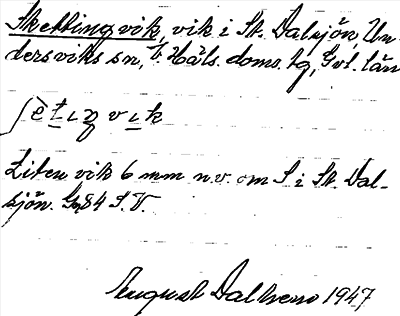 Skettingvik, vik i St. Dalsjön, Un-
dersviks sn, V. Häls. doms. tg, Gvl. län
ʃètiŋvik
Liten vik 6 mm n.v. om S i St. Dal-
sjön. Gg 84 S.V.
August Dalheno 1947